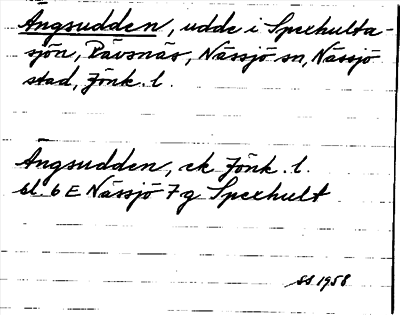 Ängsudden, udde i Sperhulta-
sjön, Rävsnäs, Nässjö sn, Nässjö
stad, Jönk. l.
Ängsudden, ek Jönk. l.
bl. 6 E Nässjö 7 g Sperhult
SS 1958